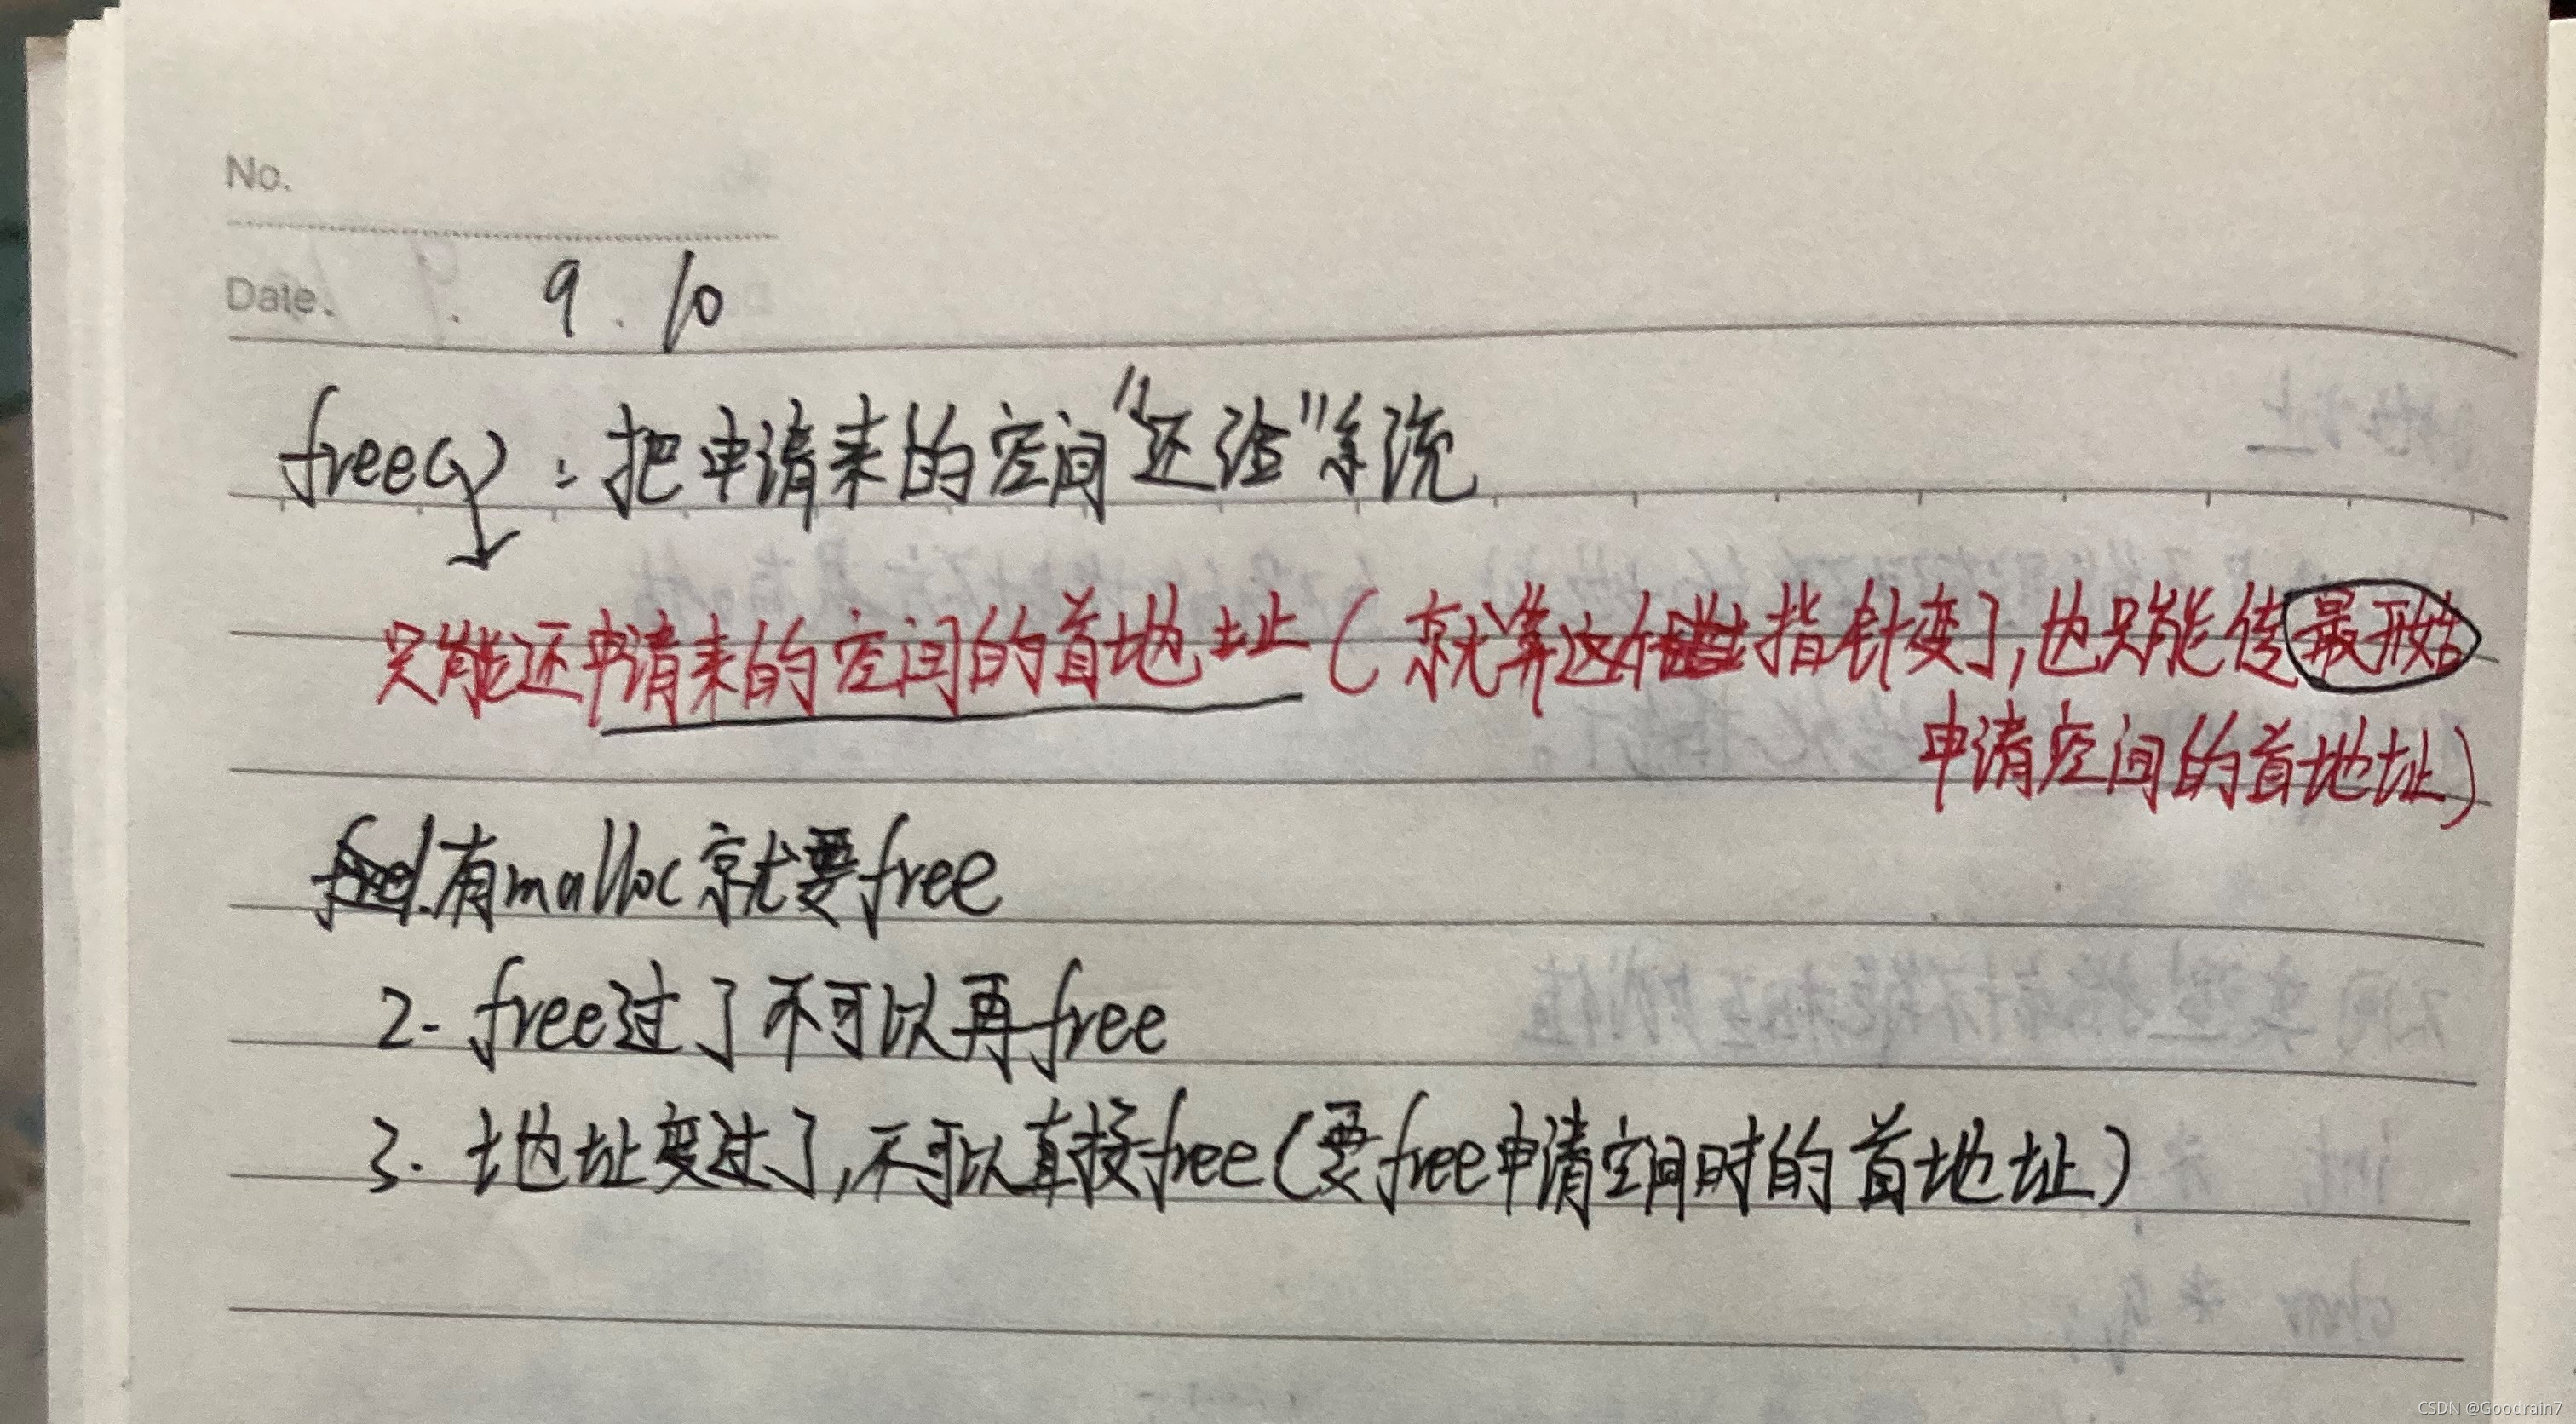 No.
Date. . 9 . 10
free( ) : 把申请来的空间"还给"系统
只能还申请来的空间的首地址(就算这个指针变了,也只能传最开始
申请空间的首地址)
1.有malloc就要free
2. free过了不可以再free
3. 地址变过了,不可以直接free(要free申请空间时的首地址)
CSDN @Goodrain7